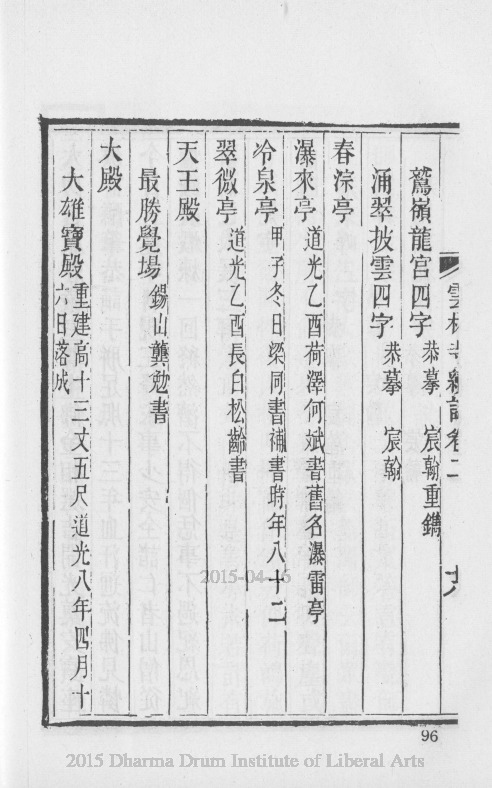 雲林寺續記卷二 十六
鷲嶺龍宮四字 恭摹 宸翰重鐫
涌翠披雲四字 恭摹 宸翰
春淙亭
瀑來亭 道光乙酉荷澤何斌書舊名瀑雷亭
冷泉亭 甲子冬日梁同書補書時年八十二
翠微亭 道光乙酉長白松齡書
天王殿
最勝覺場 錫山龔勉書
大殿
大雄寶殿 重建高十三丈五尺 道光八年四月十
六日落成
96
2015-04-16
2015 Dharma Drum Institute of Liberal Arts